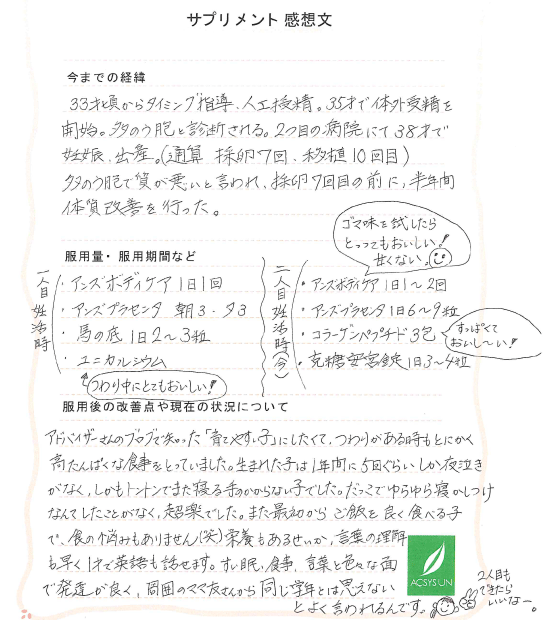 サプリメント 感想文
今までの経緯
33才頃からタイミング指導、人工授精。35才で体外受精を
開始。多のう胞と診断される。2つ目の病院にて38才で
妊娠、出産。(通算 採卵7回、移植10回目)
多のう胞で質が悪いと言われ、採卵7回目の前に、半年間
体質改善を行った。
服用量・服用期間など
一人目妊活時
・アンズボディケア 1日1回
・アンズプラセンタ 朝3・夕3
・馬の底 1日2〜3粒
・ユニカルシウム
つわり中にとてもおいしい!
ゴマ味を試したら
とってもおいしい!
甘くない。
二人目妊活時(今)
・アンズボディケア 1日1〜2回
・アンズプラセンタ 1日6〜9粒
・コラーゲンペプチド 3包
すっぱくて
おいし〜い!
・克糖安宮錠 1日3〜4粒
服用後の改善点や現在の状況について
アドバイザーさんのブログで知った「育てやすい子」にしたくて、つわりがある時もとにかく
高たんぱくな食事をとっていました。生まれた子は1年間に5回ぐらいしか夜泣き
がなく、しかもトントンでまた寝る手のかからない子でした。だっこでゆらゆら寝かしつけ
なんてしたことがなく、超楽でした。また最初からご飯を良く食べる子
で、食の悩みもありません(笑)栄養もあるせいか、言葉の理解
も早く1才で英語も話せます。すい眠、食事、言葉と色々な面
で発達が良く、周囲のママ友さんから同じ学年とは思えない
とよく言われるんです。
ACSYSUN
2人目も
できたら
いいなー。